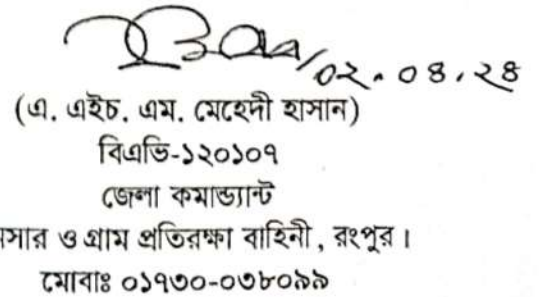 ০২.০৪.২৪
(এ. এইচ. এম. মেহেদী হাসান)
বিএভি-১২০১০৭
জেলা কমান্ড্যান্ট
নসার ও গ্রাম প্রতিরক্ষা বাহিনী, রংপুর।
মোবাঃ ০১৭৩০-০৩৮০৯৯